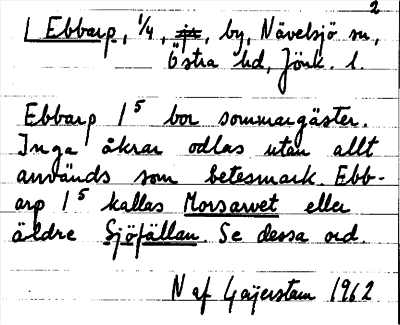 2
L Ebbarp, 1/4, by, Nävelsjö sn,
Östra hd, Jönk. l.
Ebbarp 1⁵ bor sommargäster.
Inga åkrar odlas utan allt
används som betesmark. Ebb-
arp 1⁵ kallas Morsarvet eller
äldre Sjöfällan. Se dessa ord.
N af Gajerstam 1962